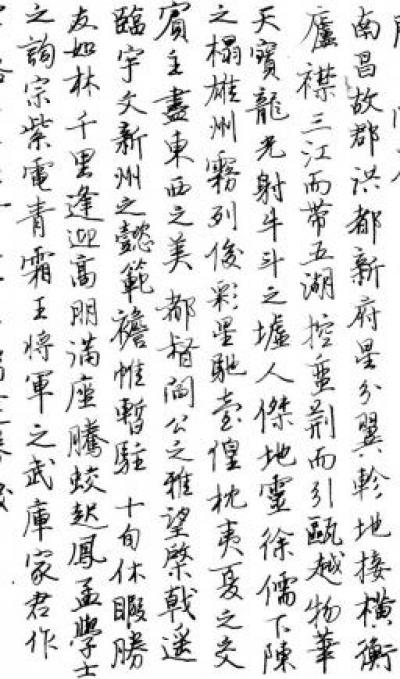 南昌故郡洪都新府星分翼軫地接橫衡
廬襟三江而带五湖控蠻荊而引甌越物華
天寶龍光射牛斗之墟人傑地靈徐儒下陳
之榻雄州霧列俊彩星馳臺隍枕夷夏之交
賓主盡東西之美都督閻公之雅望棨戟遥
臨宇文新州之懿範襜帷暫駐十旬休暇勝
友如林千里逢迎高朋满座騰蛟起鳳孟學士
之詞宗紫電青霜王將軍之武庫家君作